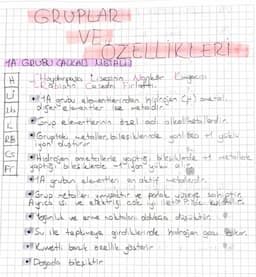 GRUPLAR
VE
ÖZELLİKLERİ
1A GRUBU (ALKALİ METAL)
H
Li
Na
K
Rb
Cs
Fr
Haydarpaşa Lisesinin Kamyonu
Cesedini Fırlattı.
1A grubu elementlerinden hidrojen ametal
diğer elementler ise metaldir.
Grup elementlerinin özel adı alkalilerdir.
Gruptaki metaller bileşiklerinde yalnızca +1 yüklü
iyon oluşturur
Hidrojen ametallerle yaptığı bileşiklerde +1 metallerle
yaptığı bileşiklerde -1 iyon yükü
1A grubun elementleri en aktif metallerdir.
Grup metalleri yumuşaktır ve parlak yüzeye sahiptir.
Ayrıca ısı ve elektriği çok iyi iletir.
Yoğunluk ve erime noktaları oldukça düşüktür.
Su ile tepkimeye girdiklerinde hidrojen gazı çıkar.
Kuvvetli bazik özellik gösterir
Doğada bileşiktir